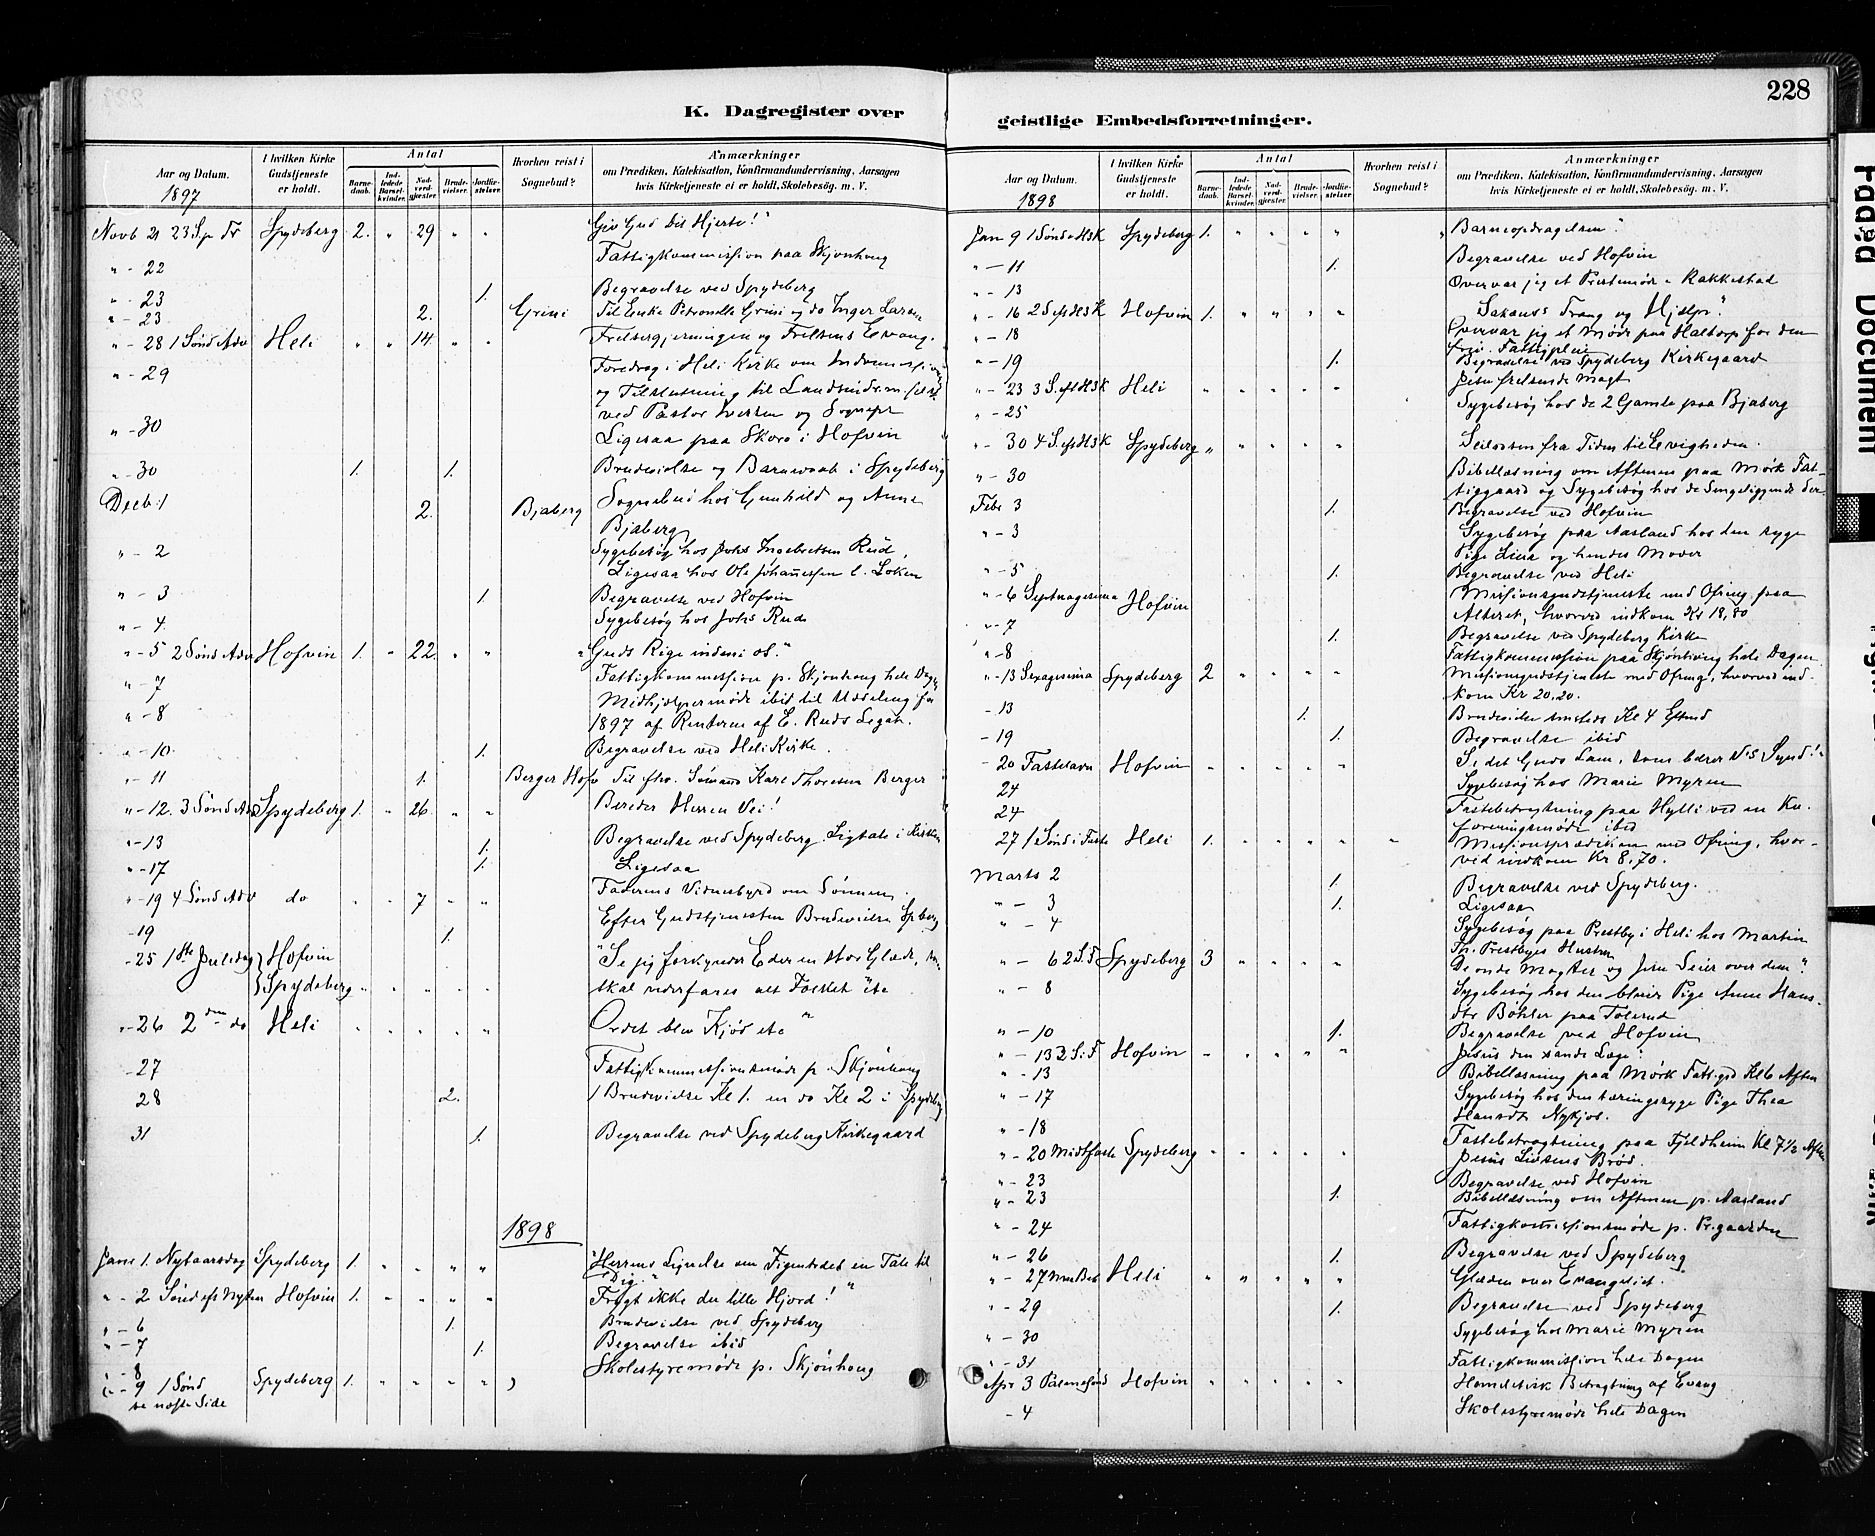 K. Dagregister over
Aar og Datum.
1897
I hvilken Kirke Gudstjeneste er holdt.
Antal
Barnedaab.
Indledede Barselkvinder.
Nadverdgjester
Brudevielser.
Jordfæstelser.
Hvorhen reist i Sognebud?
Anmærkninger
om Prædiken, Katekisation, Konfirmandundervisning, Aarsagen
hvis Kirketjeneste ei er holdt, Skolebesög. m. V.
Novb 21 23 S. p Tr Spydeberg 2. " 29 " " Giv Gud Dit Hjerte!"
" - 22 Fattigkommission paa Skjønhaug
" - 23 1. Begravelse ved Spydeberg
" - 23 2. Grini Til Enke Petronelle Grini og do Inger Larsen
" - 28 1 Sønd Adv Heli " " 14 " " Frelsergjerningen og Frelsens Evang.
" - 29 Foredrag i Heli Kirke om Indremission
og Tilslutning til
ved Pastor Iversen og Sognepr
" - 30 Ligesaa paa Skoro i Hofvin
" - 30 1. 1. Brudevielse og Barnedaab i Spydeberg
Decb: 1 2. Bjaberg Sognebud hos Gunhild og Anne
Bjaberg
" - 2 Sygebesøg hos Johs Ingebretsen Rud,
Ligesaa hos Ole Johannessen l. Løken
" - 3 1. Begravelse ved Hofvin
" - 4. Sygebesøg hos Johs Rud
" - 5 2 Sønd Adv Hofvin 1. " 22. " " "Guds Rige indeni os."
" - 7 Fattigkommission p. Skjønhaug hele Dagen
" - 8 Medhjælpermøde ibid til Uddeling for
1897 af Renterne af E. Ruds Legat.
" - 10 1. Begravelse ved Heli Kirke.
" - 11 1. Berger Hofv Til fhv. Sømand Karl Thoresen Berger
" - 12. 3 Sønd Adv Spydeberg 1. " 26. " " Bereder Herren Vei!
" - 13 1. Begravelse ved Spydeberg. Ligtale i Kirken
" - 17 1. Ligesaa
" - 19 4 Sønd Adv do " " 7 " " Faderens Vidnesbyrd om Sønnen
- 19 1. Efter Gudstjenesten Brudevielse Spberg
- 25 1ste Juledag } Hofvin "Se jeg forkynder Eder en stor Glæde, som
} Spydeberg " " " " " skal vederfares alt Folket" etc
" - 26 2den do Heli " " " " " Ordet blev Kjød etc"
- 27 Fattigkommissionsmøde p. Skjønhaug
28 2. 1 Brudevielse Kl 1. en do Kl 2 i Spydeberg
31 1. Begravelse ved Spydeberg Kirkegaard
1898
Jan 1. Nytaarsdag Spydeberg 1. " " " " "Herrens Lignelse om Figentræet en Tale til
Dig."
" - 2 Sønd eft Nytaar Hofvin 1. " " " " Frygt ikke du lille Hjord!"
" - 6 1. Brudevielse ved Spydeberg
" - 7 1. Begravelse ibid
- 8 Skolestyremøde p. Skjønhaug
" - 9 1 Sønd Spydeberg 1. " " " "
se næste Side
228
geistlige Embedsforretninger.
Aar og Datum.
1898
I hvilken Kirke Gudstjeneste er holdt.
Antal
Barnedaab.
Indledede Barselkvinder.
Nadverdgjester
Brudevielser.
Jordfæstelser.
Hvorhen reist i Sognebud?
Anmærkninger
om Prædiken, Katekisation, Konfirmandundervisning, Aarsagen
hvis Kirketjeneste ei er holdt, Skolebesög. m. V.
Jan 9 1 Sønd e H3K Spydeberg 1. " " " " "Barneopdragelsen".
" - 11 1. Begravelse ved Hofvin
" - 13 Overvar jeg et Prestemøde i Rakkestad
" - 16 2 S eft H3K Hofvin 1. " " " " Sakens Trang og Hjelp".
" - 18 Overvar jeg et Møde paa Haltorp for den
friv. Fattigpleie
" - 19 1. Begravelse ved Spydeberg Kirkegaard
" - 23 3 S. eft H3K Heli " " " " " Jesu frelsende Magt
" - 25 Sygebesøg hos de 2 Gamle paa Bjaberg
" - 30 4 S. eft H3K Spydeberg " " " " " Seiladsen fra Tiden til Evigheden.
" - 30 Bibellæsning om Aftenen paa Mørk Fattiggaard og Sygebesøg hos de Sengeliggende der.
Febr 3 1. Begravelse ved Hofvin
" - 3 Sygebesøg paa Aasland hos den syge
Pige Lina og hendes Moder
" - 5 1. Begravelse ved Heli
" - 6 Septuagesima Hofvin Missionsgudstjeneste med Ofring paa
Alteret, hvorved indkom Kr 18,80
" - 7 1. Begravelse ved Spydeberg Kirke
" - 8 Fattigkommission paa Skjønhaug hele Dagen
" - 13 Sexagesima Spydeberg 2 " " " " Missionsgudstjeneste med Ofring, hvorved indkom Kr 20.20.
- 13 1. Brudevielse smsteds Kl 4 Eftmd
- 19 1. Begravelse ibid
- 20 Fastelavn Hofvin " " " " " Se, det Guds Lam, som bærer V's Synd!"
24 Sygebesøg hos Marie Myren
24 Fastebetragtning paa Hylli ved en Kv.
foreningsmøde ibid
27 1 Sønd i Faste Heli 1. " " " " Missionsprædiken med Ofring, hvorved indkom Kr 8,70.
Marts 2 1. Begravelse ved Spydeberg.
" - 3 1. Ligesaa
" - 4 Sygebesøg paa Prestby i Heli hos Martin
Th. Prestbyes Hustru
" - 6 2 S. F Spydeberg 3 " " " " De onde Magter og Jesu Seier over dem".
" - 8 Sygebesøg hos den blinde Pige Anne Hansdtr Bøhler paa Tolerud
" - 10 1. Begravelse ved Hofvin
" - 13 3 S. i F Hofvin " " " " " Jesus den sande Læge".
" - 13 Bibellæsning paa Mørk Fattiggd Kl 6 Aften
" - 17 Sygebesøg hos den tæringssyge Pige Thea
Hansdtr Nykjos.
" - 18 Fastebetragtning paa Fjeldheim Kl 7½ Aften
" - 20 Midtfaste Spydeberg " " " " " Jesus Livsens Brød.
" - 23 1. Begravelse ved Hofvin
" - 23 Bibellæsning om Aftenen p. Aasland
" - 24 Fattigkommissionsmøde p. Pr.gaarden
" - 26 1. Begravelse ved Spydeberg
" - 27 Mar Beb Heli " " " " " Glæden over Evangeliet.
" - 29 1. Begravelse ved Spydeberg
" - 30 Sygebesøg hos Marie Myren
" - 31 Fattigkommission hele Dagen
Apr 3 Palmesønd Hofvin " " " " " Homiletisk Betragtning af Evang
- 4 Skolestyremøde hele Dagen